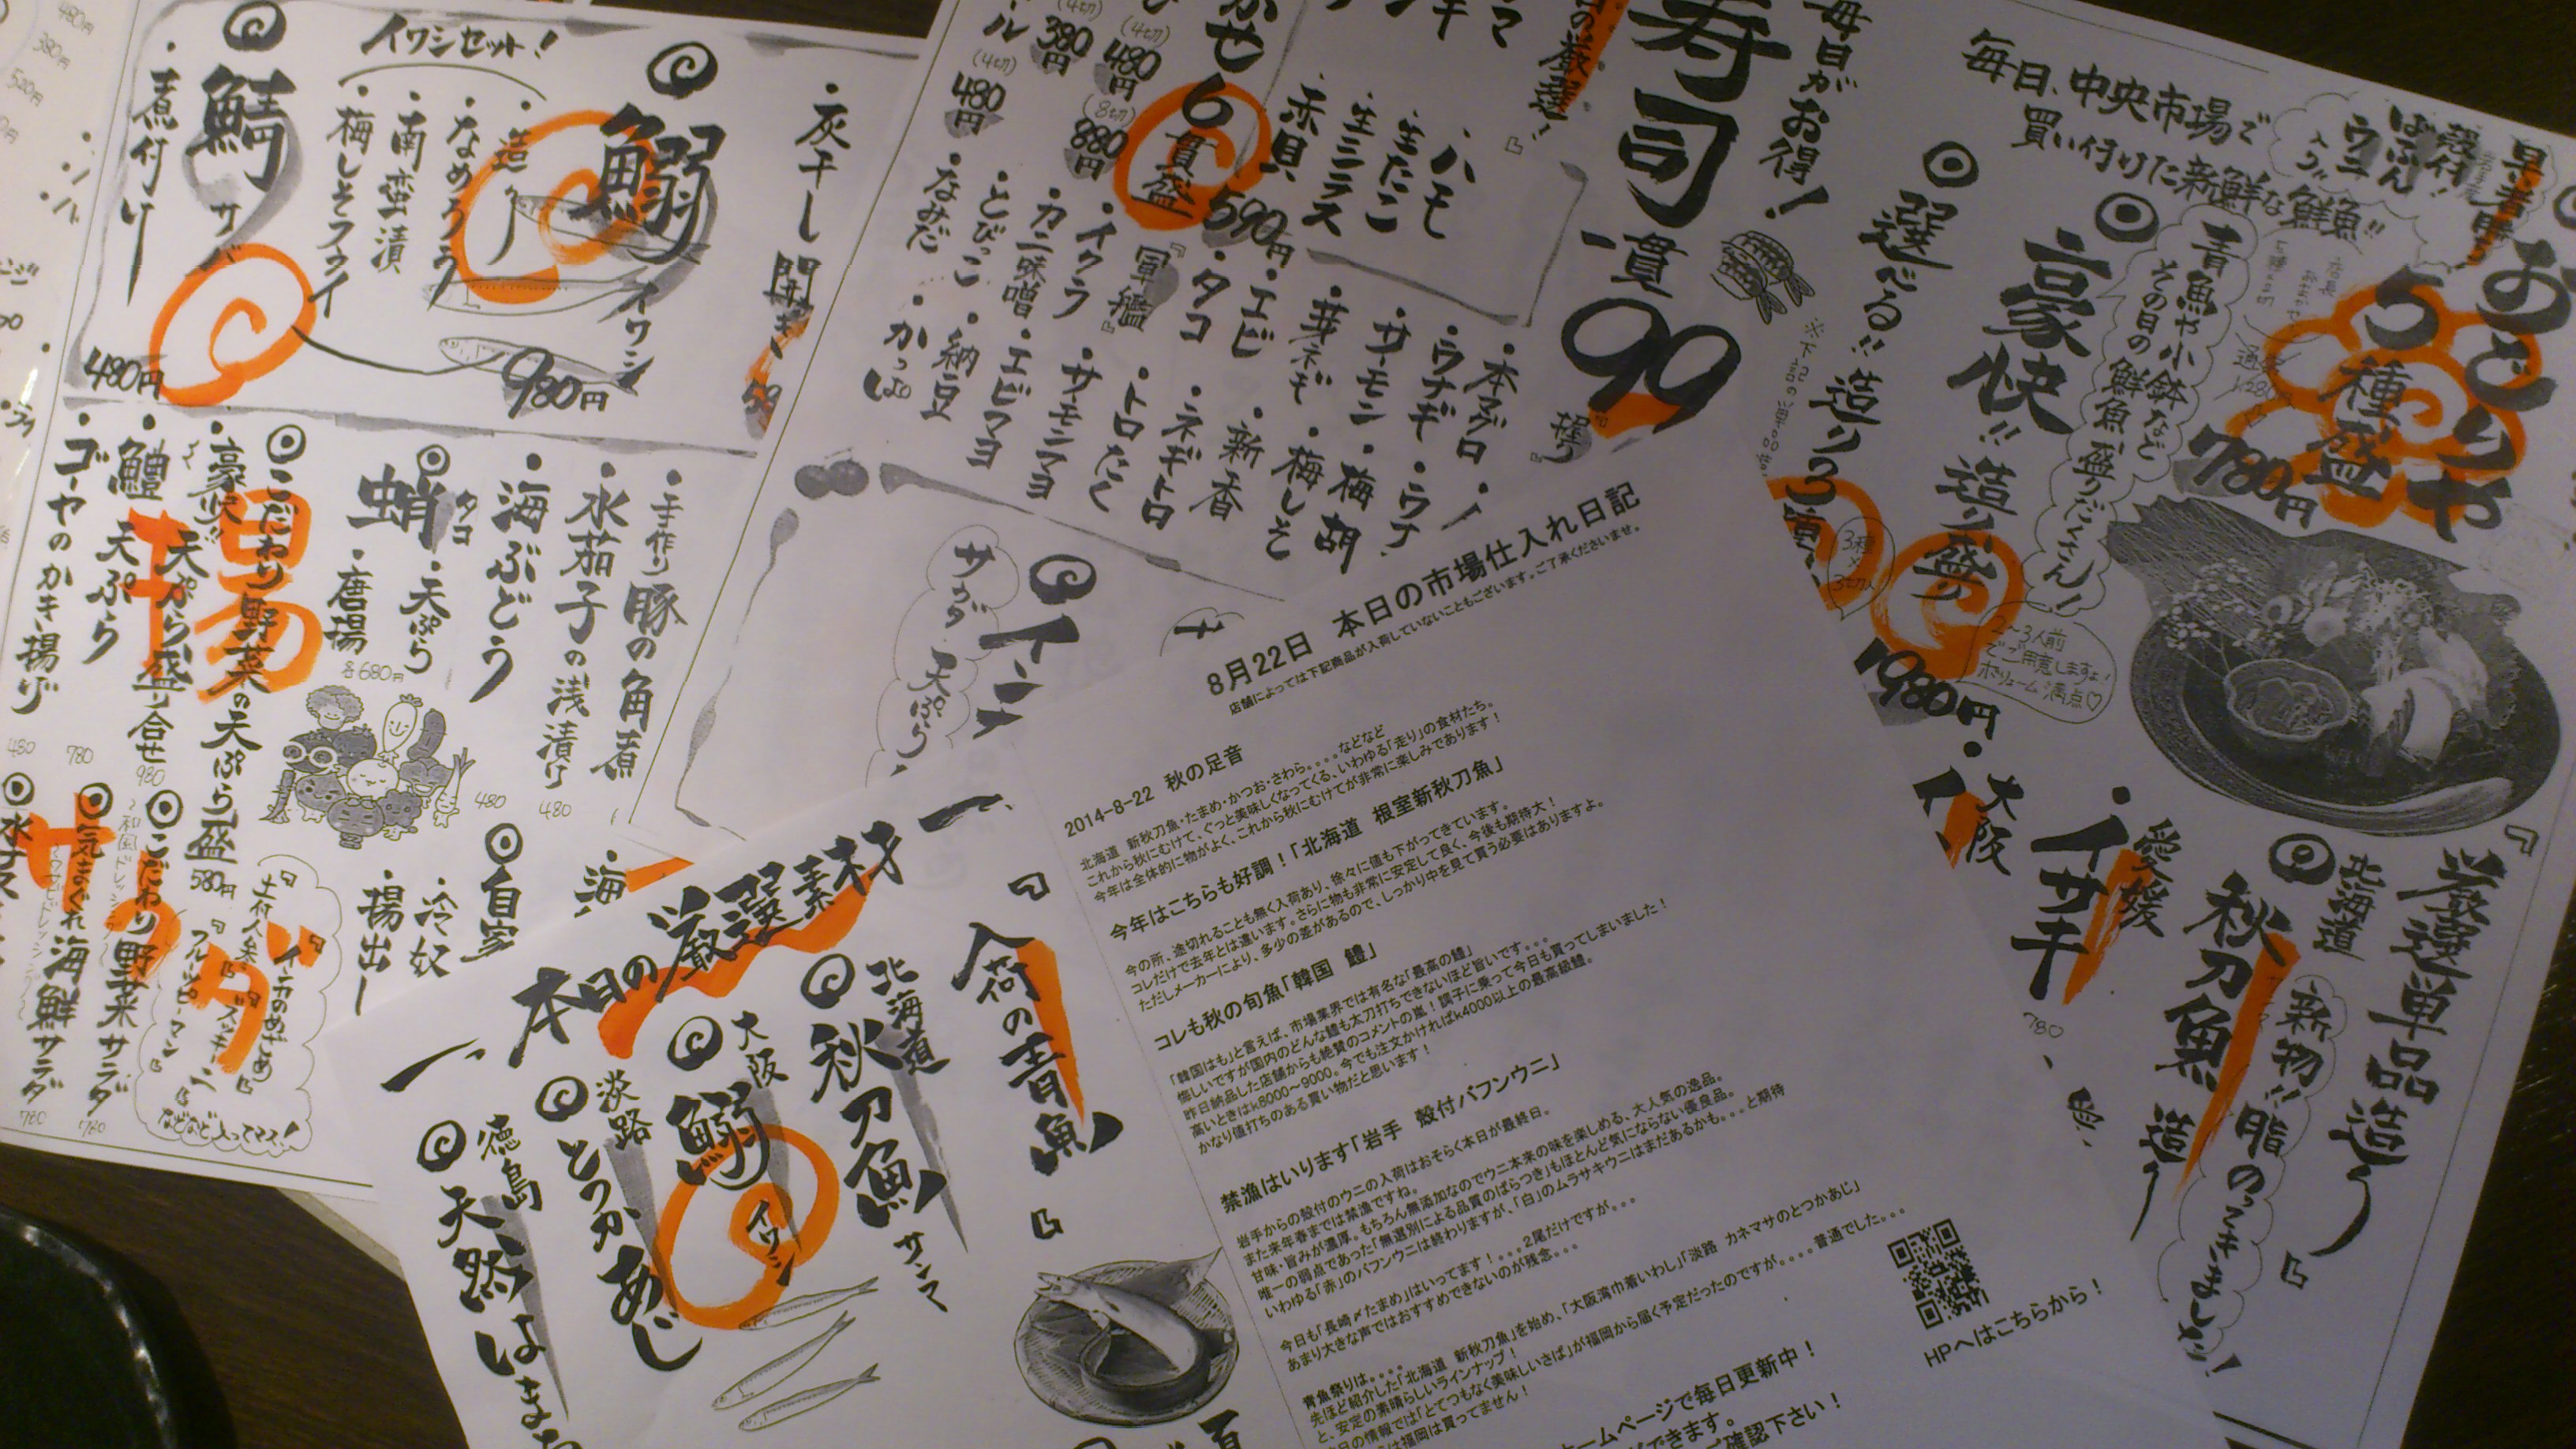 イワシセット!
鰯 イワシ
・造り
・なめろう
・南蛮漬
・梅しそフライ
980円
鯖 サバ
・煮付け
480円
・灰干し開き
・手作り豚の角煮
・水茄子の浅漬け
480
・海ぶどう
480
蛸 タコ
・天ぷら
・唐揚
各680円
揚
こだわり野菜の天ぷら盛
580円
・豪快!!天ぷら盛り合せ
980
・鱧天ぷら
780
・ゴーヤのかき揚げ
480
自家
・冷奴
・揚出し
・海
サラダ
こだわり野菜サラダ
780
気まぐれ海鮮サラダ
780
水ナス
『土付人参』
『ズッキーニ』
『フルーツピーマン』
などなど入ってマス!
毎日がお得!
寿司
一貫99
『握り』
・本マグロ
・ウナギ
・サーモン
・梅しそ
・芽ネギ
・新香
・エビ
・ネギトロ
・タコ
・トロたく
『軍艦』
・イクラ
・サーモンマヨ
・カニ味噌
・エビマヨ
・とびっこ
・納豆
・なみだ
・かっぱ
・ハモ
・生だこ
・生シラス
・赤貝
6貫盛
590円
(4切)
380円
(4切)
480円
(8切)
880円
(4切)
480円
天ぷら
毎日、中央市場で
買い付けた新鮮な鮮魚!!
早い者勝
殻付!
ばふん
ウニ
入り
おどりや
5種盛
780円
青魚や小鉢など
その日の鮮魚、盛りだくさん!
豪快!!造り盛り
1980円
2〜3人前
でご用意しますよ!
ボリューム満点♡
選べる!!造り3種
3種
×
3切入
『厳選単品造り』
北海道
秋刀魚 造り
新物!!脂のってきました!
愛媛
・イサキ
780
大阪
本日の厳選素材
『今旬の青魚』
北海道
秋刀魚 サンマ
大阪
鰯 イワシ
淡路
とつかあじ
徳島
天然はま
8月22日 本日の市場仕入れ日記
店舗によっては下記商品が入荷していないこともございます。ご了承くださいませ。
2014-8-22 秋の足音
北海道 新秋刀魚・たまめ・かつお・さわら。。。。などなど
これから秋にむけて、ぐっと美味しくなってくる、いわゆる「走り」の食材たち。
今年は全体的に物がよく、これから秋にむけてが非常に楽しみであります!
今年はこちらも好調!「北海道 根室新秋刀魚」
今の所、途切れることも無く入荷あり、徐々に値も下がってきています。
コレだけで去年とは違います。さらに物も非常に安定して良く、今後も期待大!
ただしメーカーにより、多少の差があるので、しっかり中を見て買う必要はありますよ。
コレも秋の旬魚「韓国 鱧」
「韓国はも」と言えば、市場業界では有名な「最高の鱧」
悔しいですが国内のどんな鱧も太刀打ちできないほど旨いです。。。
昨日納品した店舗からも絶賛のコメントの嵐!調子に乗って今日も買ってしまいました!
高いときはk8000〜9000。今でも注文かければk4000以上の最高級鱧。
かなり値打ちのある買い物だと思います!
禁漁はいります「岩手 殻付バフンウニ」
岩手からの殻付のウニの入荷はおそらく本日が最終日。
また来年春までは禁漁ですね。
甘味・旨みが濃厚。もちろん無添加なのでウニ本来の味を楽しめる、大人気の逸品。
唯一の弱点であった「無選別による品質のばらつき」もほとんど気にならない優良品。
いわゆる「赤」のバフンウニは終わりますが、「白」のムラサキウニはまだあるかも。。。と期待
今日も「長崎〆たまめ」はいってます!。。。2尾だけですが。。。
あまり大きな声ではおすすめできないのが残念。。。
青魚祭りは。。。。
先ほど紹介した「北海道 新秋刀魚」を始め、「大阪湾巾着いわし」「淡路 カネマサのとつかあじ」
と、安定の素晴らしいラインナップ!
日の情報では「とてつもなく美味しいさば」が福岡から届く予定だったのですが。。。。普通でした。。。
は福岡は買ってません!
ームページで毎日更新中!
できます。
ご確認下さい!
HPへはこちらから!